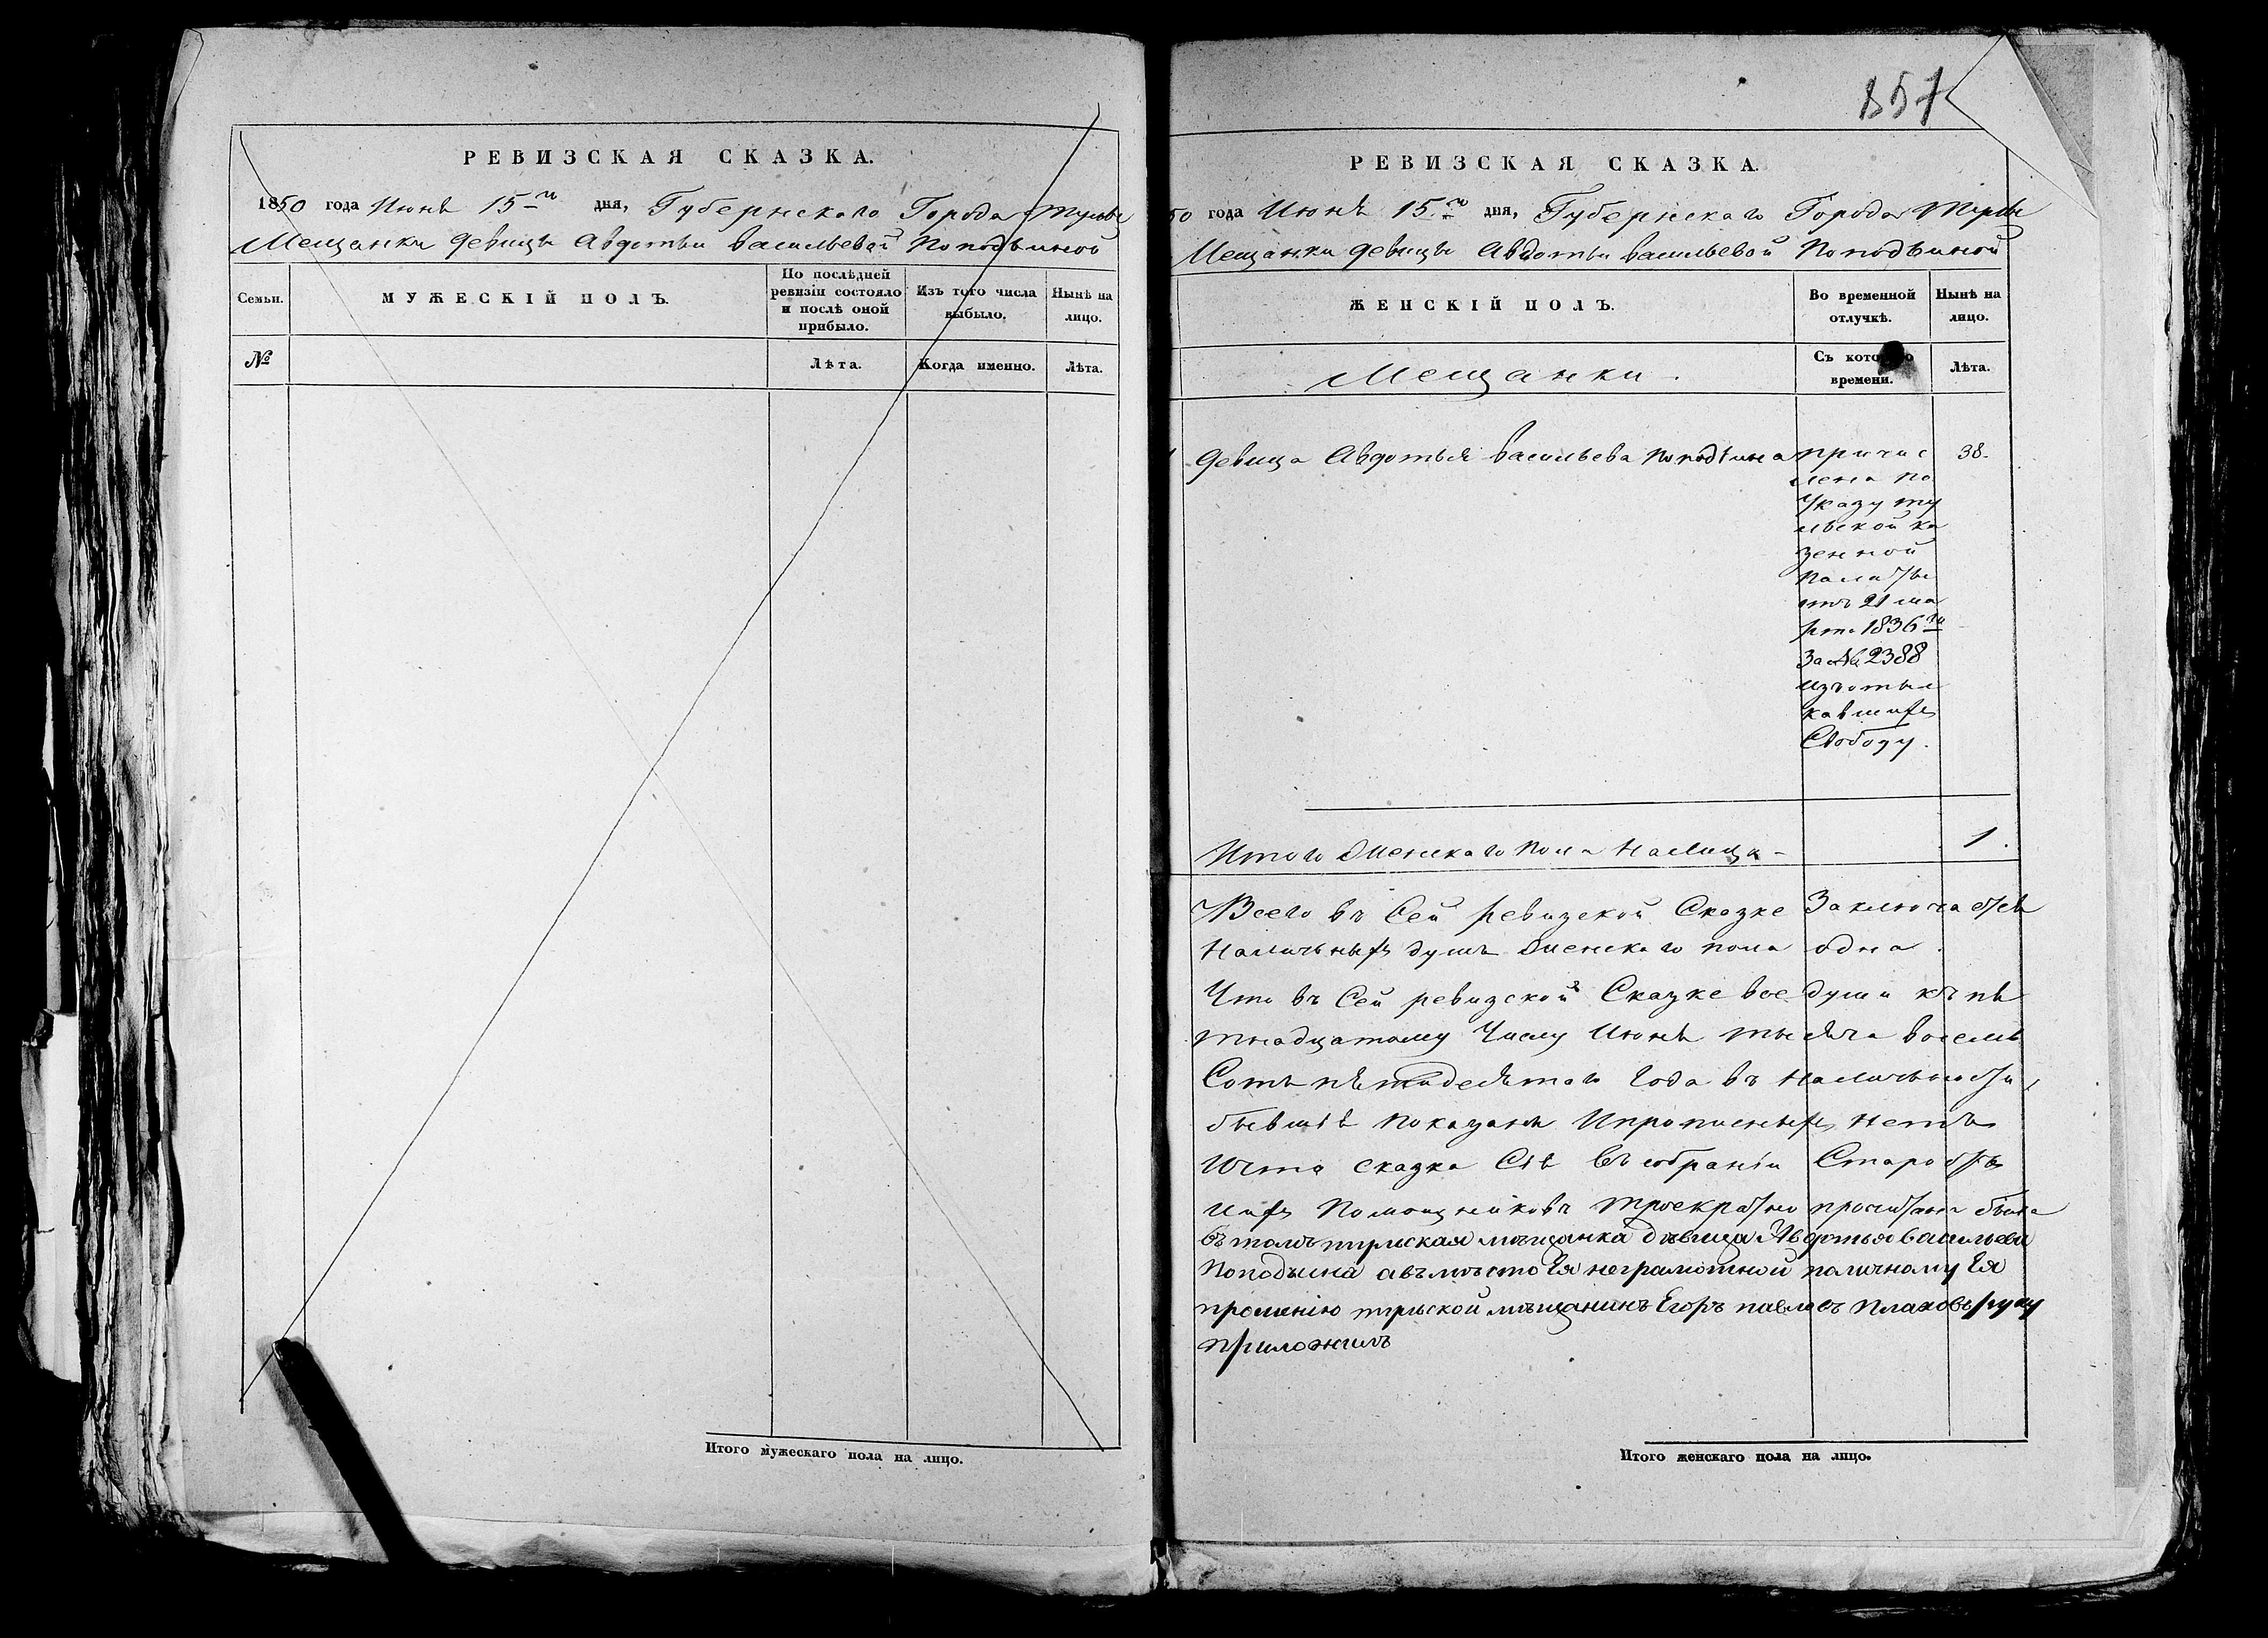 РЕВИЗСКАЯ СКАЗКА.
1850 года Июня 15-го дня, Губернскаго Города Тулы
Мещанки девицы Авдотьи васильевой Поползиной
Семьи.
МУЖЕСКІЙ ПОЛЪ.
По послѣдней ревизіи состояло и послѣ оной прибыло.
Изъ того числа выбыло.
Нынѣ на лицо.
№
Лѣта.
Когда именно.
Лѣта.
Итого мужескаго пола на лицо.
857
РЕВИЗСКАЯ СКАЗКА.
50 года Июня 15-го дня, Губернскаго Города Тулы
Мещанки девицы Авдотьи васильевой
ЖЕНСКІЙ ПОЛЪ.
Во временной отлучкѣ.
Нынѣ на лицо.
Мещанки.
Съ котораго времени.
Лѣта.
1 девица Авдотья васильева
причис
38.
лена по
Указу ту
льской ка
зенной
палаты
отъ 21 ма
рта 1836 го
За № 2388
изъ
Свободу.
Итого женскаго пола на лица - 1.
Всего въ Сей ревизской Сказке Заключается
Наличныхъ душъ женскаго пола одна.
Что въ Сей ревизской Сказке все души къ пя
тнадцатому Числу Июня тысяча восемь
Сотъ пятидесятаго Года въ Наличьности
бывшія показаны И прописныхъ Нетъ
И что сказка Сія въ собраніи Старосты
ихъ Помощниковъ троекратно прочитана была
въ томъ тульская мѣщанка дѣвица Авдотья васильева
а въ мѣсто Ея неграмотной по личному Ея
прошенію тульской мѣщанинъ Егоръ павловъ Плаховъ руку
приложилъ
Итого женскаго пола на лицо.